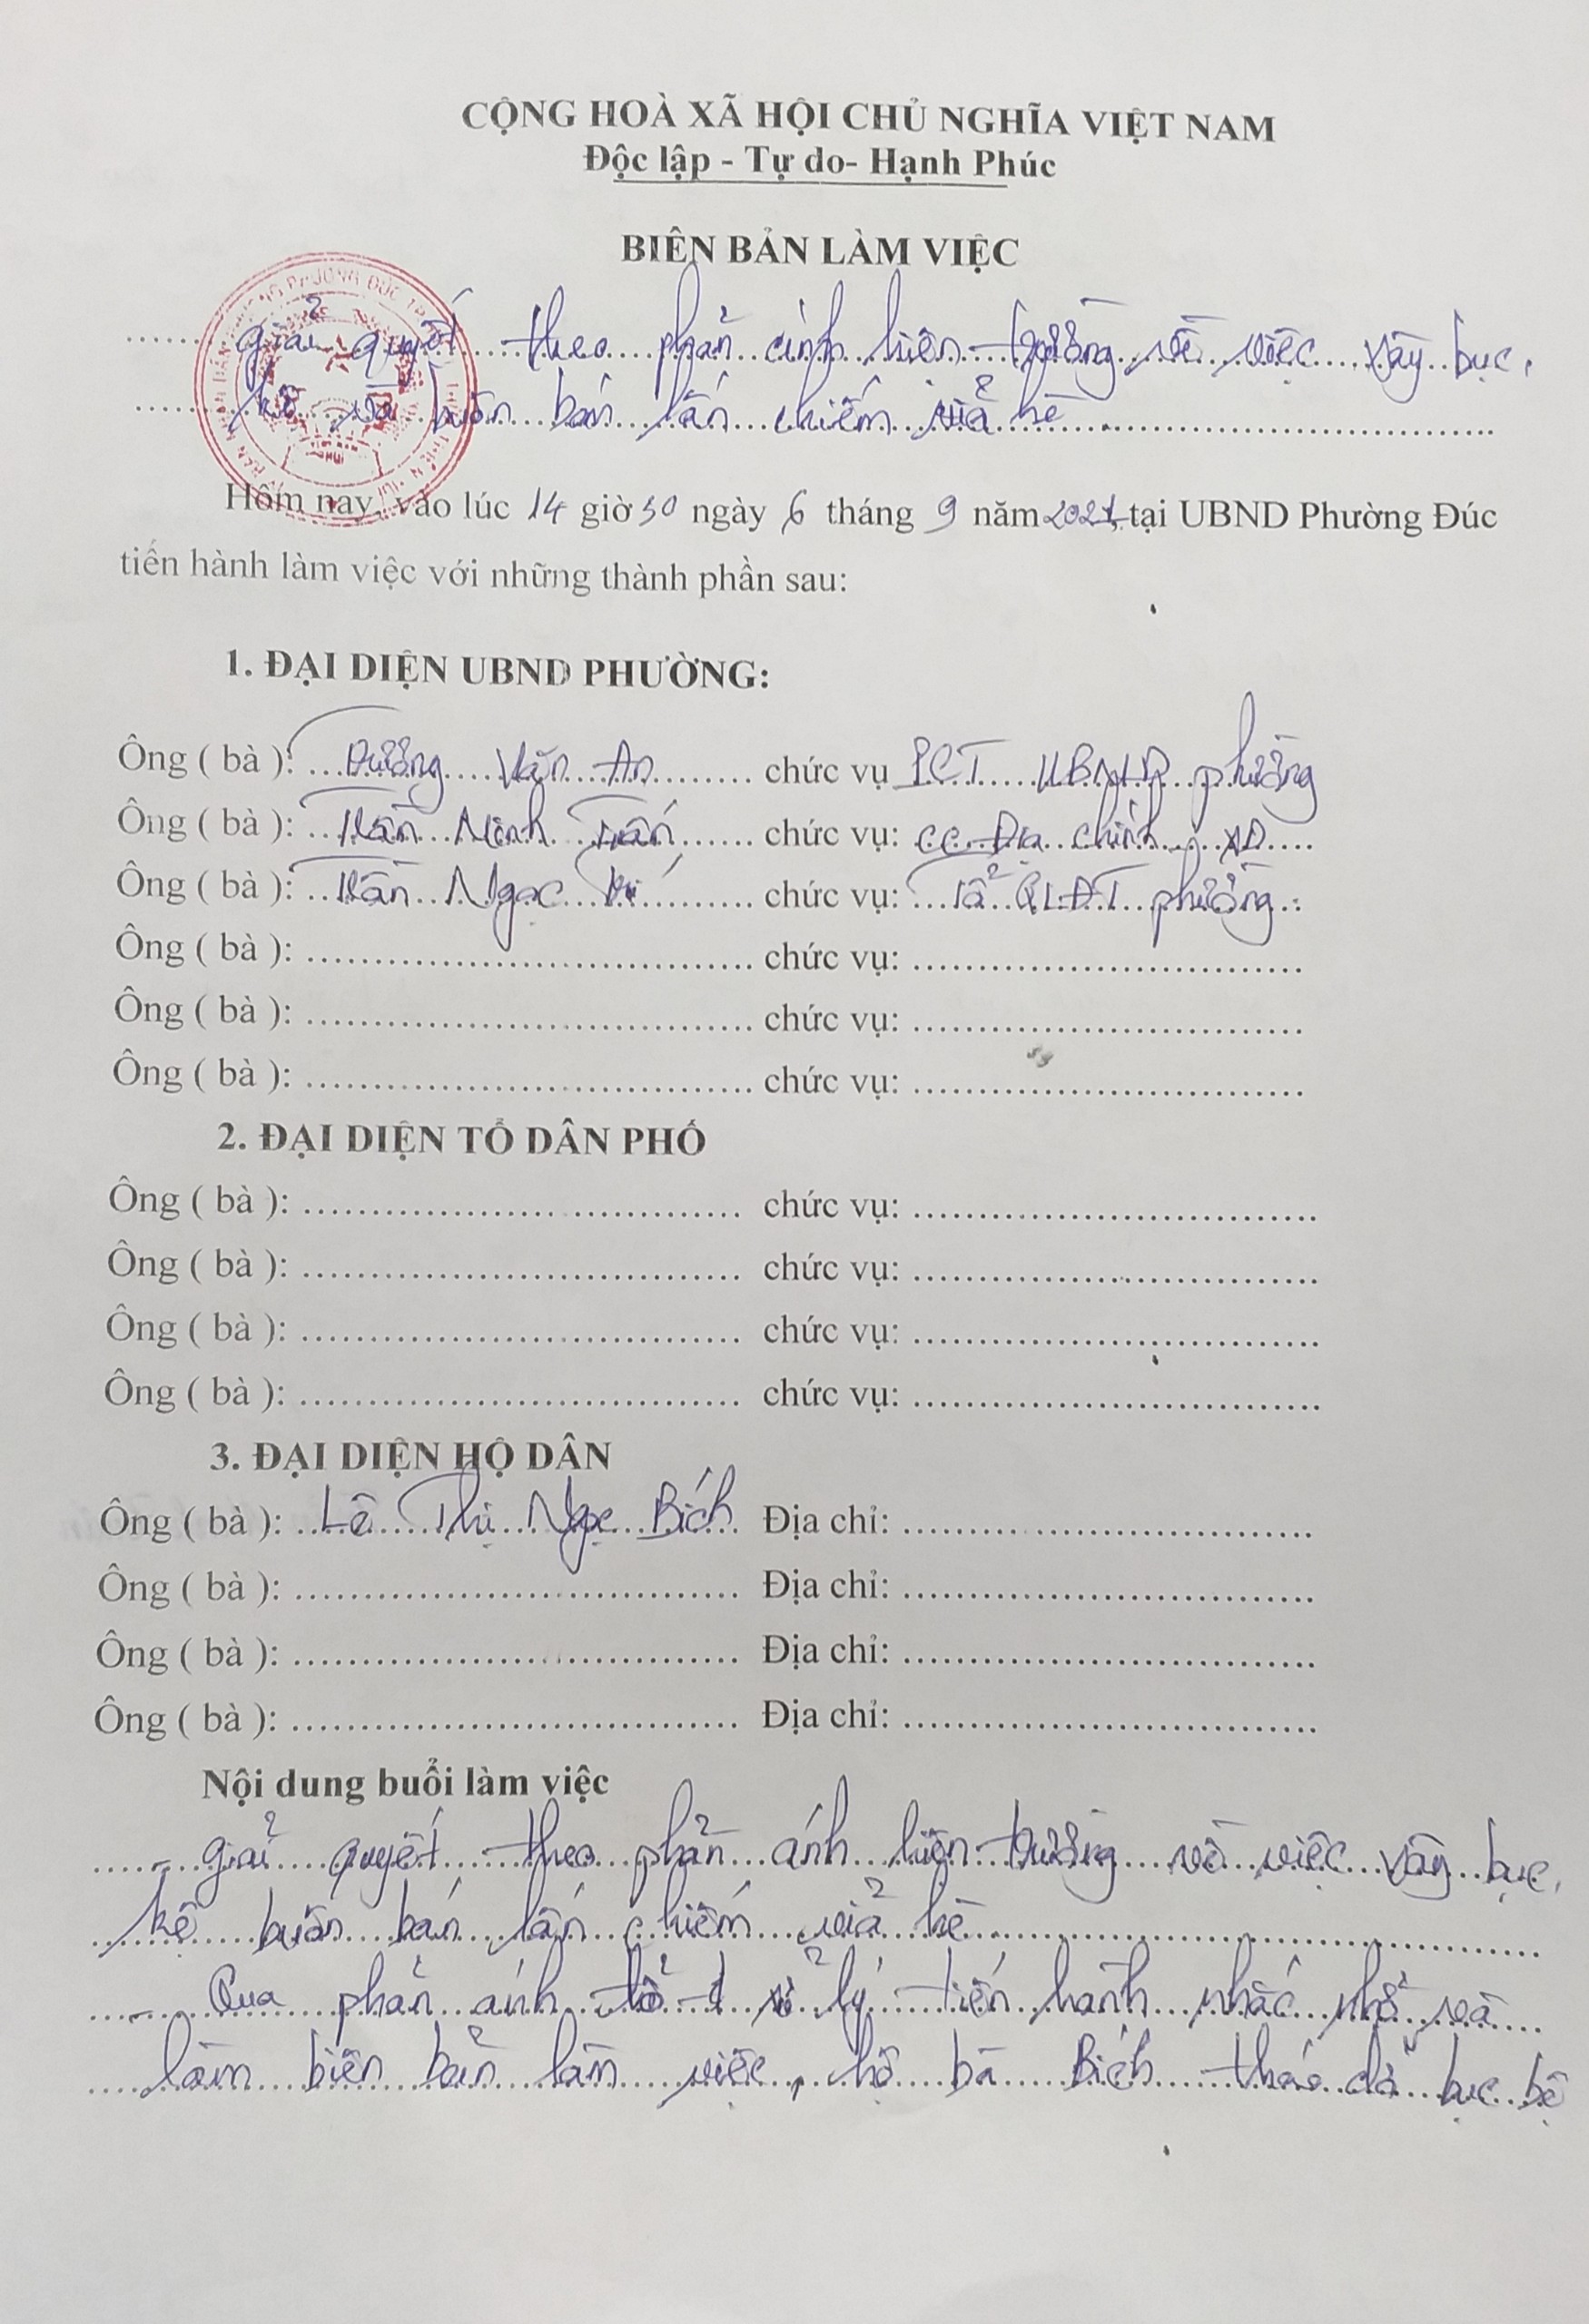 CỘNG HOÀ XÃ HỘI CHỦ NGHĨA VIỆT NAM
Độc lập - Tự do- Hạnh Phúc
BIÊN BẢN LÀM VIỆC
giải quyết theo phản ánh hiện trường về việc xây bục,
kệ và buôn bán lấn chiếm vỉa hè
Hôm nay, vào lúc 14 giờ 30 ngày 6 tháng 9 năm 2021, tại UBND Phường Đúc
tiến hành làm việc với những thành phần sau:
1. ĐẠI DIỆN UBND PHƯỜNG:
Ông ( bà ): Dương Văn An chức vụ PCT UBND phường
Ông ( bà ): Trần Minh Tuấn chức vụ: CC Địa chính XD
Ông ( bà ): Trần Ngọc chức vụ: Tổ QLĐT phường
Ông ( bà ): chức vụ:
Ông ( bà ): chức vụ:
Ông ( bà ): chức vụ:
2. ĐẠI DIỆN TỔ DÂN PHỐ
Ông ( bà ): chức vụ:
Ông ( bà ): chức vụ:
Ông ( bà ): chức vụ:
Ông ( bà ): chức vụ:
3. ĐẠI DIỆN HỘ DÂN
Ông ( bà ): Lê Thị Ngọc Bích Địa chỉ:
Ông ( bà ): Địa chỉ:
Ông ( bà ): Địa chỉ:
Ông ( bà ): Địa chỉ:
Nội dung buổi làm việc
- giải quyết theo phản ánh hiện trường về việc xây bục,
kệ buôn bán lấn chiếm vỉa hè
- Qua phản ánh tổ xử lý tiến hành nhắc nhở và
làm biên bản làm việc, hộ bà Bích tháo dỡ bục bệ